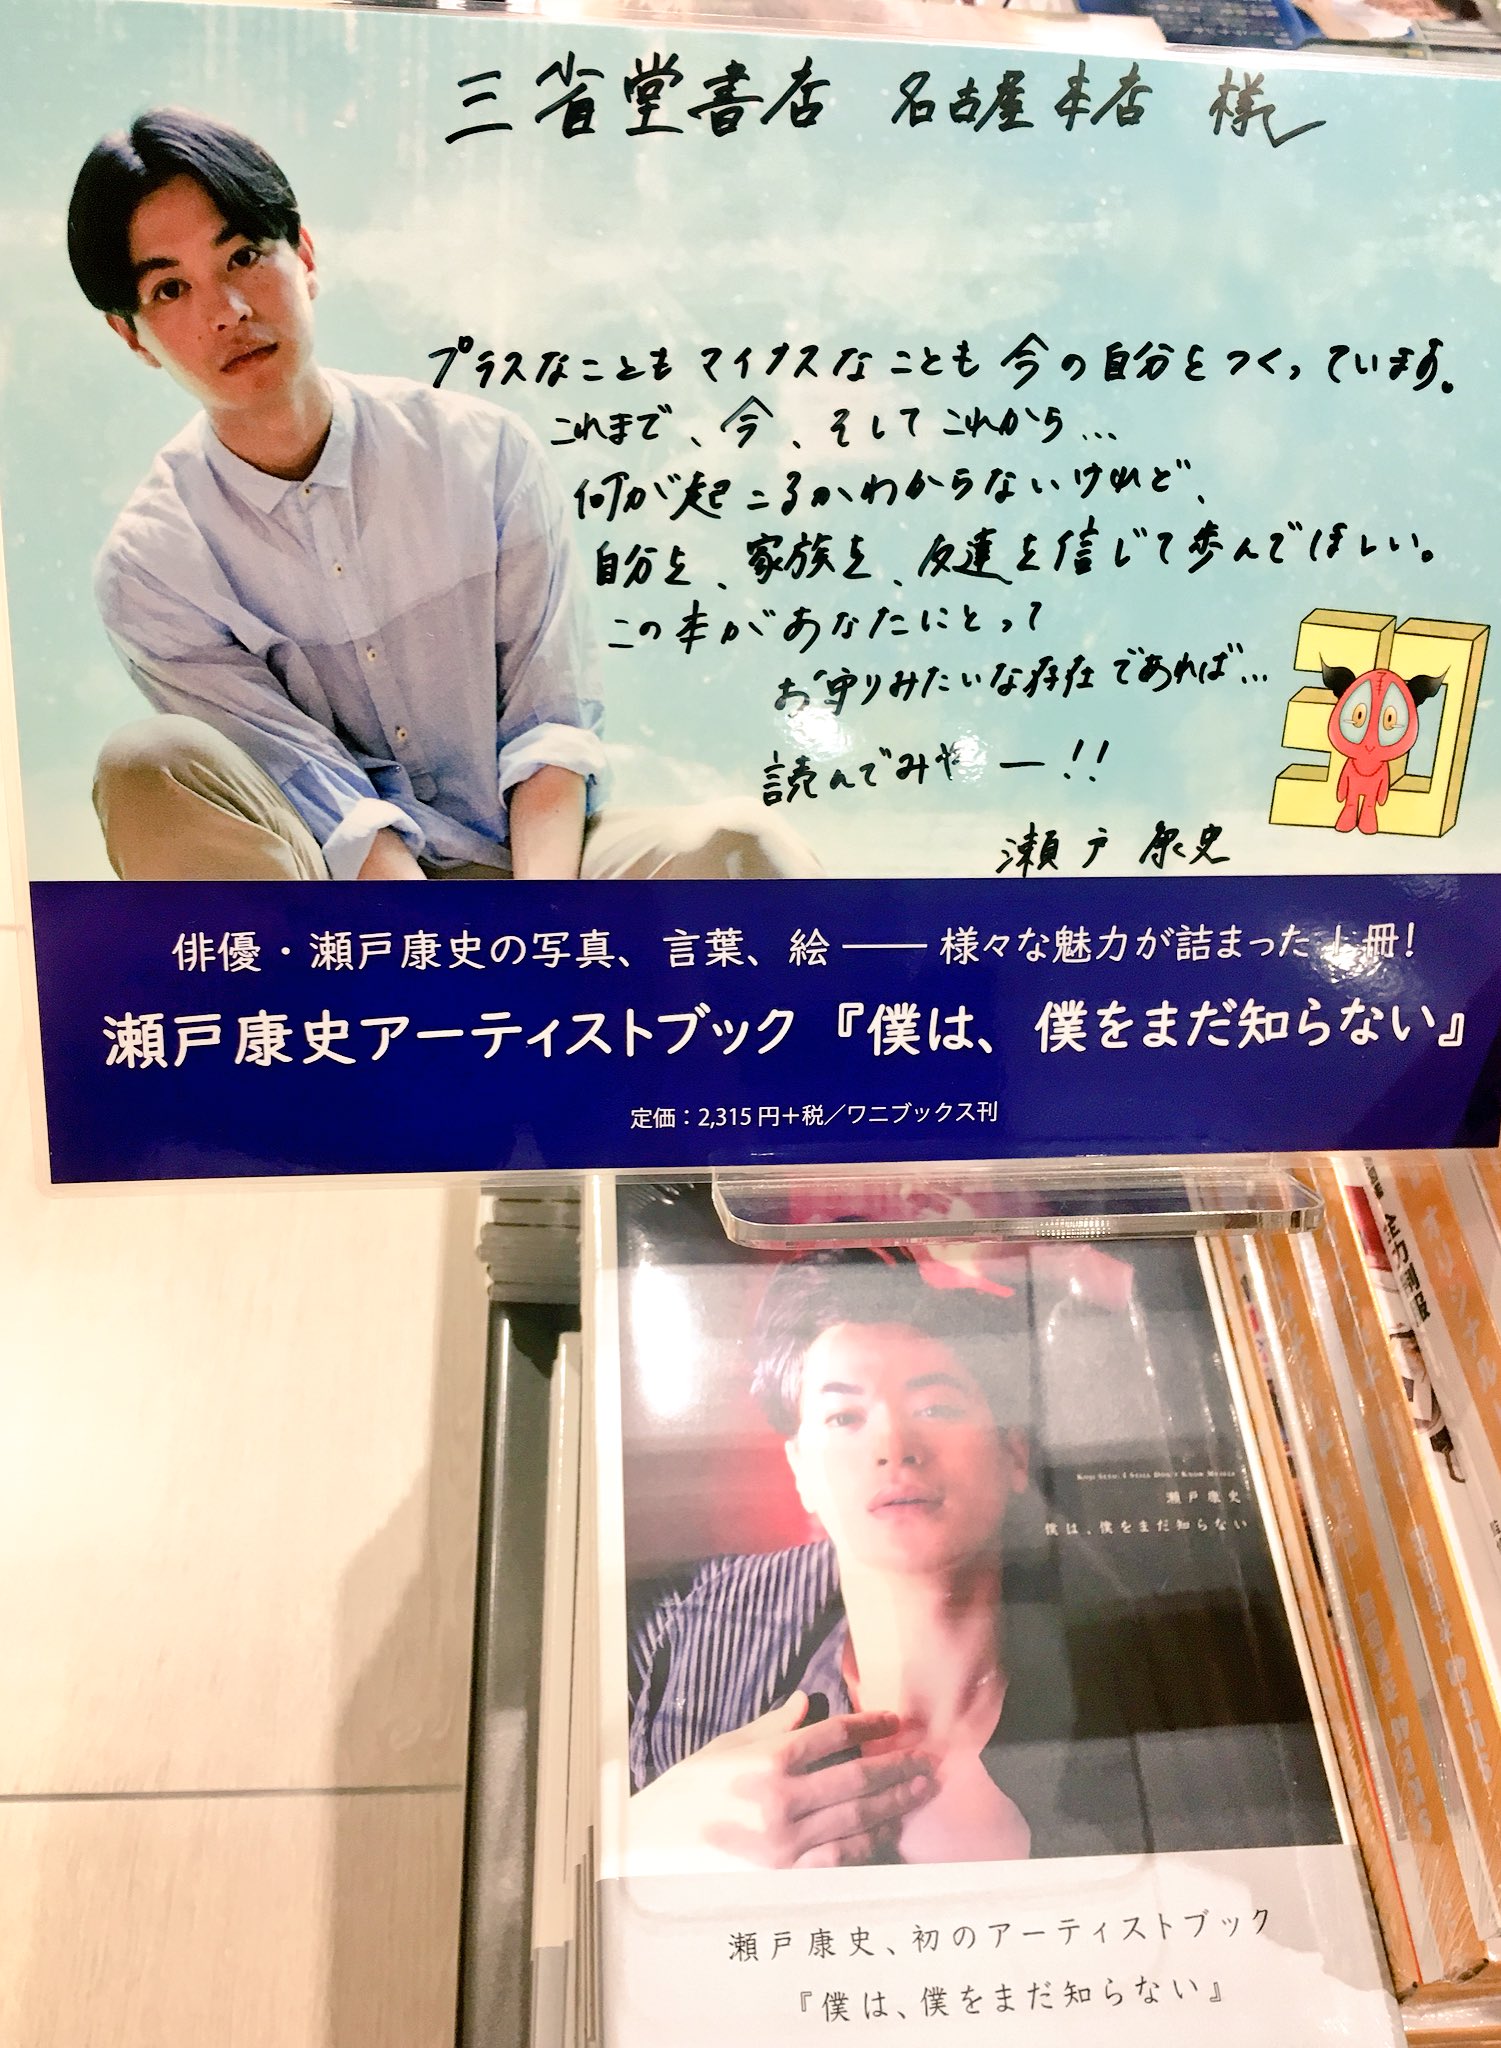 三省堂書店 名古屋本店 様
プラスなこともマイナスなことも今の自分をつくっています。
これまで、今、そしてこれから…
何が起こるかわからないけれど、
自分を、家族を、友達を信じて歩んでほしい。
この本があなたにとって
お守りみたいな存在であれば…
読んでみやー!!
瀬戸康史
俳優・瀬戸康史の写真、言葉、絵――様々な魅力が詰まった1冊!
瀬戸康史アーティストブック『僕は、僕をまだ知らない』
定価:2,315円+税/ワニブックス刊
瀬戸康史
僕は、僕をまだ知らない
瀬戸康史、初のアーティストブック
『僕は、僕をまだ知らない』